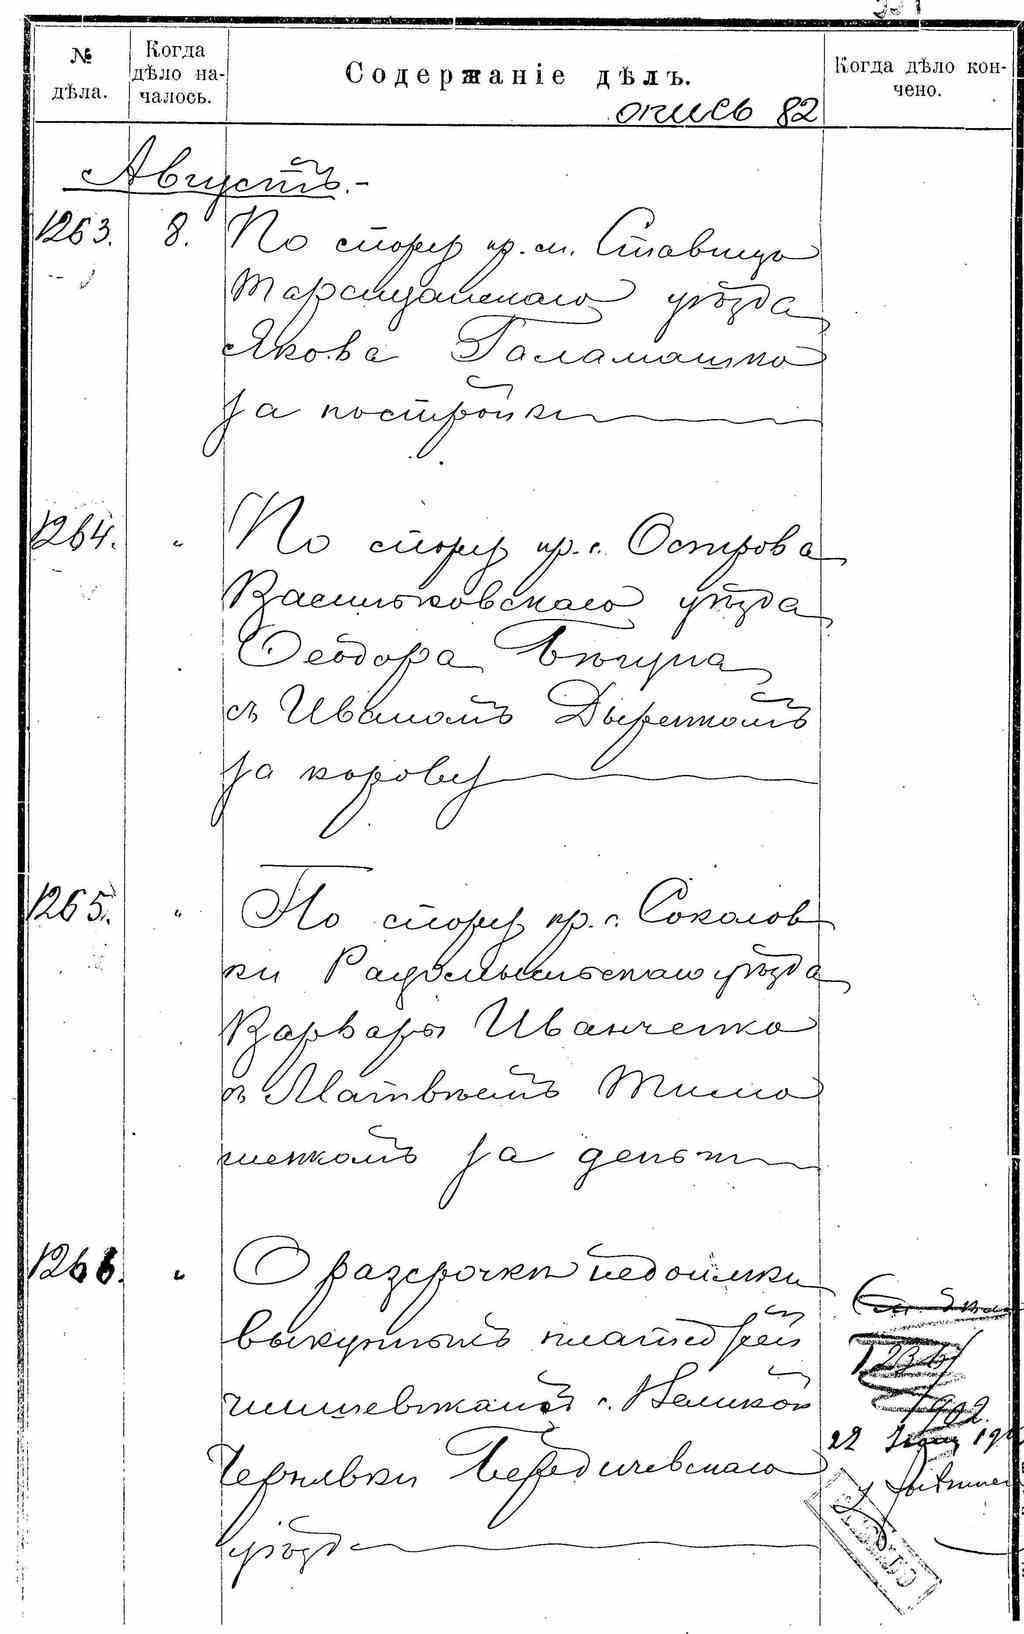 № дѣла.
Когда дѣло на-
чалось.
Содержаніе дѣлъ.
Когда дѣло кон-
чено.
опись 82
Августъ.-
1263. 8. По спору кр. м. Ставищъ
Таращанскаго уѣзда
Якова Галамашко
за постройки
1264. " По спору кр. с. Острова
Васильковскаго уѣзда
Ѳеодора Бѣгуна
съ Иваномъ Дыренкомъ
за корову
1265. " По спору кр. с. Соколов
ки Радомысльскаго уѣзда
Варвары Иванченко
съ Матвѣемъ Тимо
шенкомъ за деньги
1266. " О разсрочкѣ недоимки
выкупныхъ платежей
чиншевиками с. Великой
Чернявки Бердичевскаго
уѣзда
1902.
22